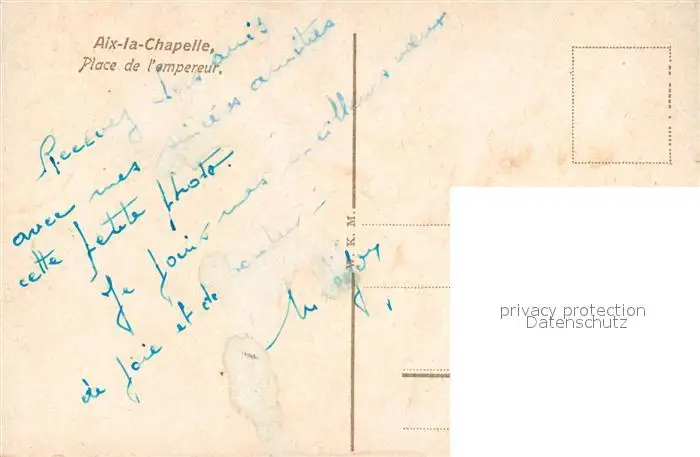 Aix-la-Chapelle,
Place de l'empereur.
Recevez amis
avec mes sincères amitiés
cette petite photo.
Je joins mes meilleurs vœux
de joie et de bonheur
W. K. M.
privacy protection
Datenschutz